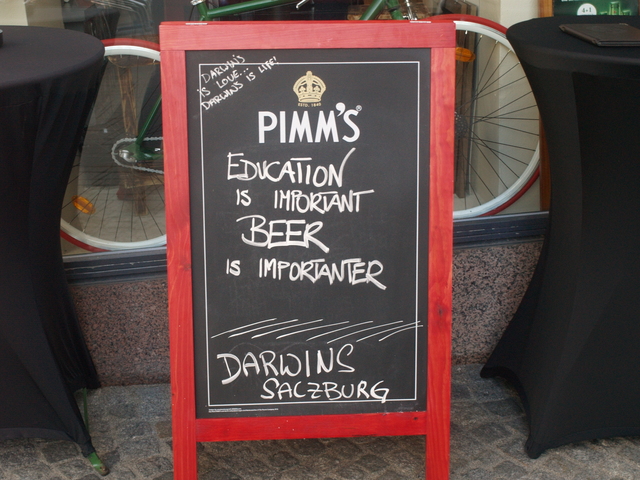 DARWIN'S
IS LOVE...
DARWIN'S IS LIFE!
ESTD. 1840
PIMM'S®
EDUCATION
IS IMPORTANT
BEER
IS IMPORTANTER
DARWINS
SALZBURG